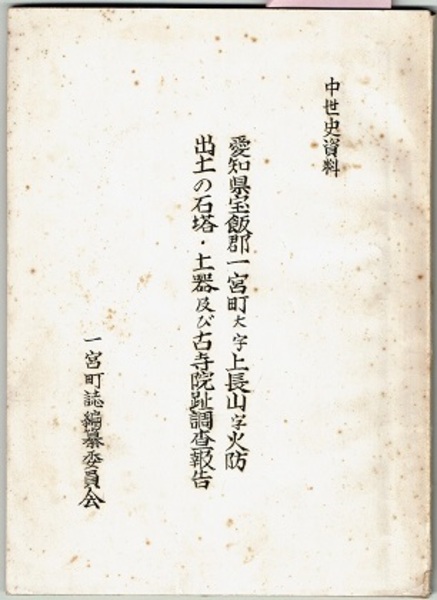 中世史資料
愛知県宝飯郡一宮町大字上長山字火防
出土の石塔・土器及び古寺院趾調査報告
一宮町誌編纂委員会